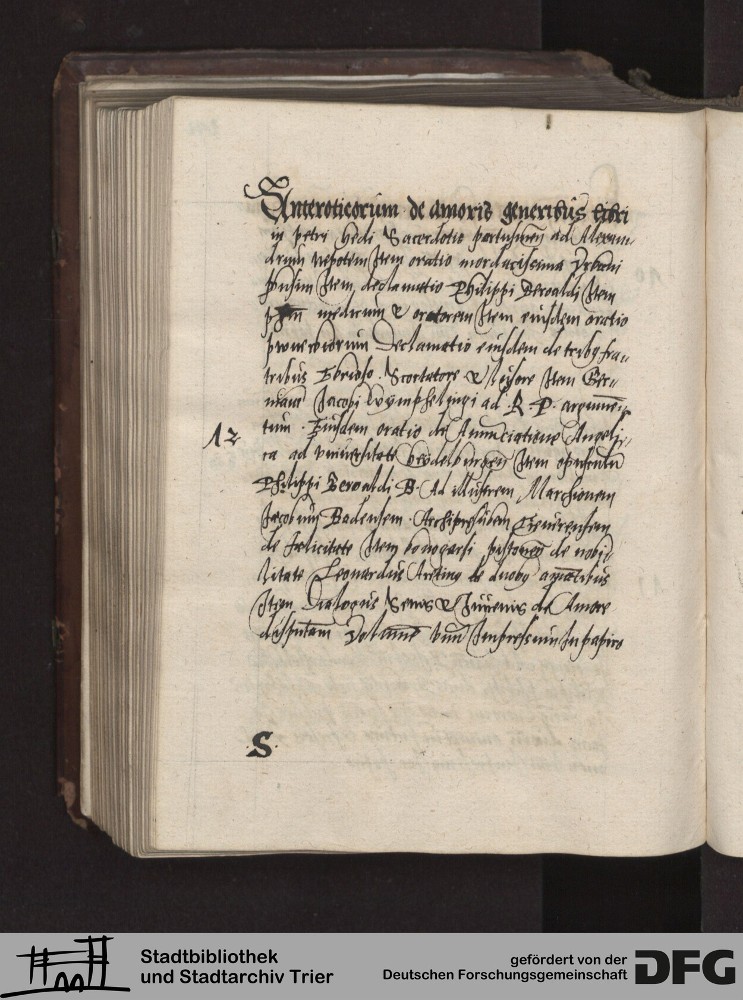 Anteroticorum de amoris generibus libri
iij petri Hedi Sacerdotis portusneñ ad Alexan-
drum nepotem Item oratio mordacissima
Item declamatio Philippi Beroaldi Item
medicum & oratorem Item eiusdem oratio
prouerbiorum Declamatio eiusdem de tribꝰ fra-
tribus Ebrioso . Scortatore & lusore Item Ger-
Jacobi wymphelingi ad . R . P .
tum . Eiusdem oratio de Annunciatione Angeli-
12
ca ad vniuersitatē heydelbergeñ Item opusculū
Philippi Beroaldi B . Ad illustrem Marchionem
Jacobum Badensem . Archipresulem Treuerensem
de felicitate Item bonogarsi de nobi-
litate Leonardus Aretinꝰ de duobꝰ amātibus
Item Dialogus Senis & Juuenis de Amore
disputam̄ Volumē vnū Impressum In papiro
.S.
Stadtbibliothek
und Stadtarchiv Trier
gefördert von der
Deutschen Forschungsgemeinschaft
DFG